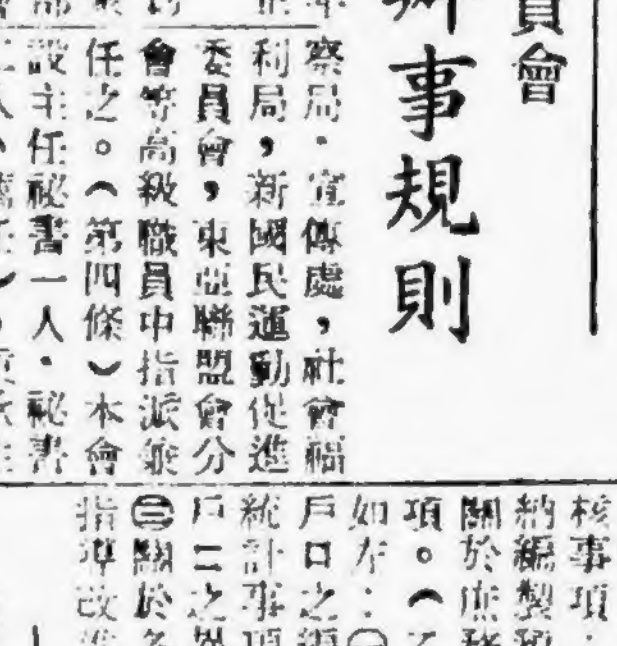 員會
辦事規則
察局・宣傳處，社會福
利局，新國民運動促進
委員會，東亞聯盟會分
會等高級職員中指派兼
任之。（第四條）本會
設主任秘書一人・秘書
核事項：
納編製預
關於庶務
項。（乙
如左：㊀
戶口之編
統計事項
戶二之異
㊂關於各
指導改進